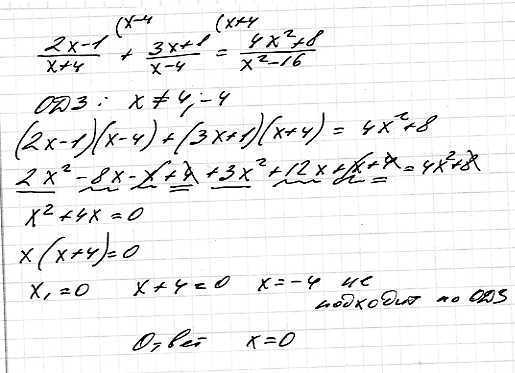 (x-4 (x+4
2x-1/x+4 + 3x+1/x-4 = 4x²+8/x²-16
ОДЗ: x ≠ 4; -4
(2x-1)(x-4)+(3x+1)(x+4) = 4x²+8
2x²-8x-x+4+3x²+12x+x+4=4x²+8
x²+4x=0
x(x+4)=0
x₁=0 x+4=0 x=-4 не
подходит по ОДЗ
Ответ x=0